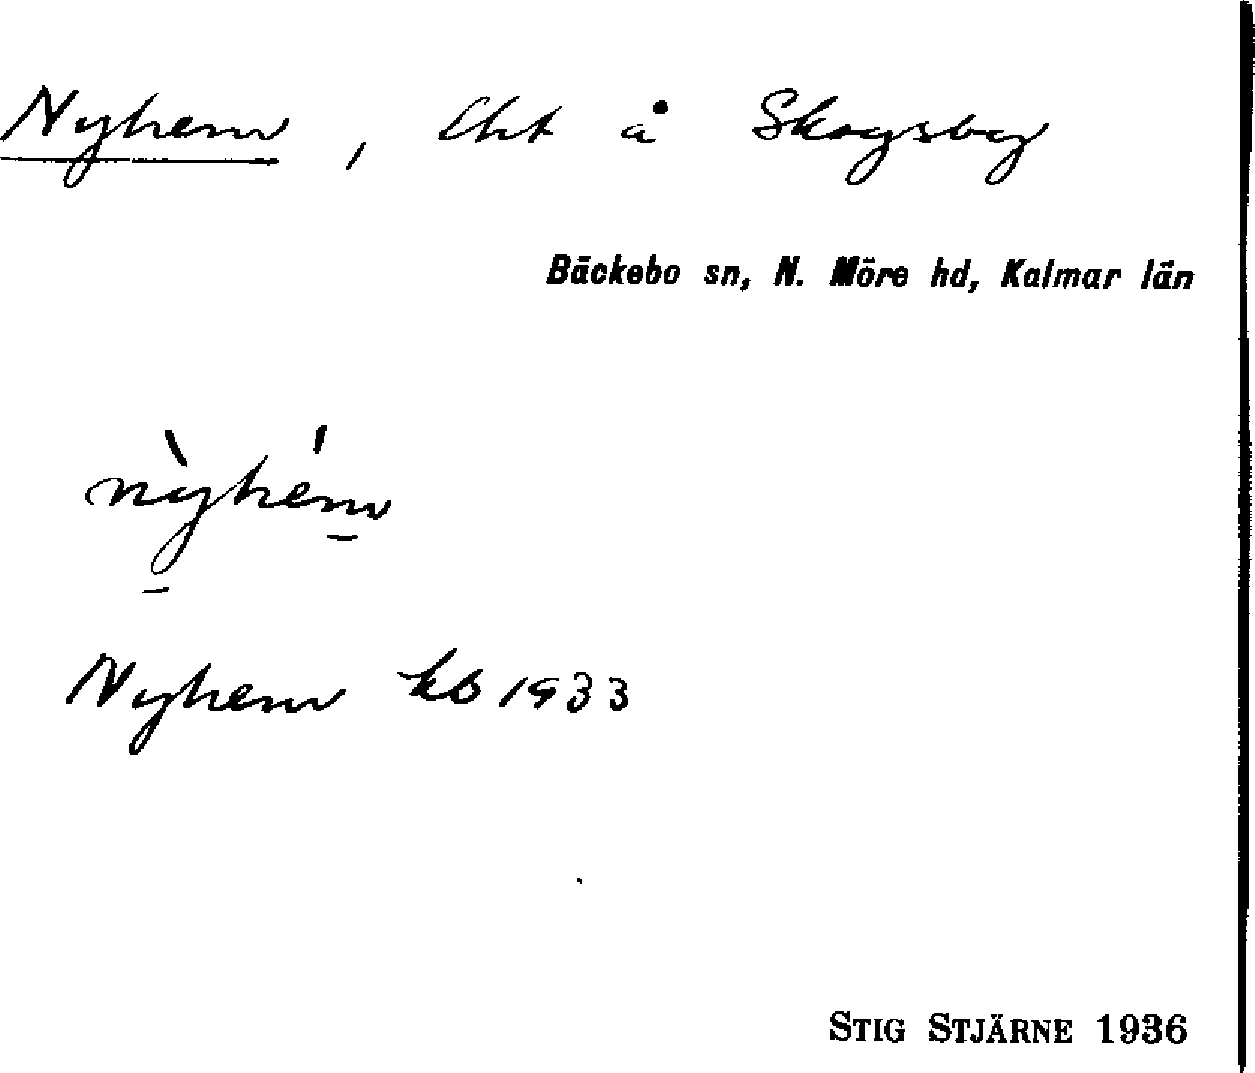 Nyhem, lht å Skogsby
Bäckebo sn, N. Möre hd, Kalmar län
nỳhém
Nyhem kb 1933
STIG STJÄRNE 1936